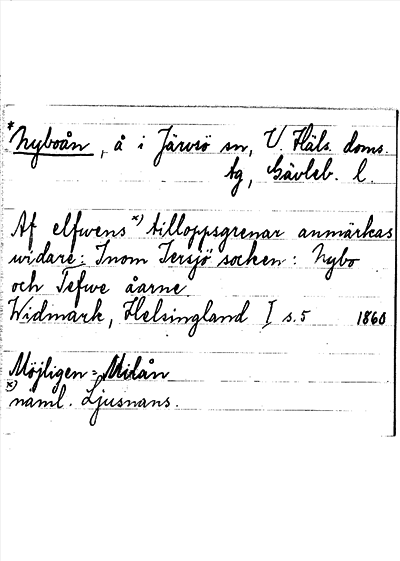 *Nyboån, å i Järvsö sn, V. Häls. doms.
tg, Gävleb. l.
Af elfwens x) tilloppsgrenar anmärkas
widare: Inom Jersjö socken: Nybo
och Tefwe åarne
Widmark, Helsingland I s.5 1860
Möjligen = Milån
x) näml. Ljusnans.